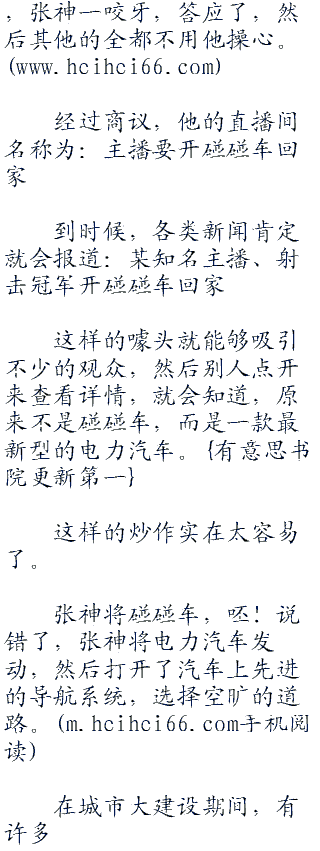 ，张神一咬牙，答应了，然
后其他的全都不用他操心。
(www.hcihci66.com)
经过商议，他的直播间
名称为：主播要开碰碰车回
家
到时候，各类新闻肯定
就会报道：某知名主播、射
击冠军开碰碰车回家
这样的噱头就能够吸引
不少的观众，然后别人点开
来查看详情，就会知道，原
来不是碰碰车，而是一款最
新型的电力汽车。{有意思书
院更新第一}
这样的炒作实在太容易
了。
张神将碰碰车，呸！说
错了，张神将电力汽车发
动，然后打开了汽车上先进
的导航系统，选择空旷的道
路。(m.hcihci66.com手机阅
读)
在城市大建设期间，有
许多